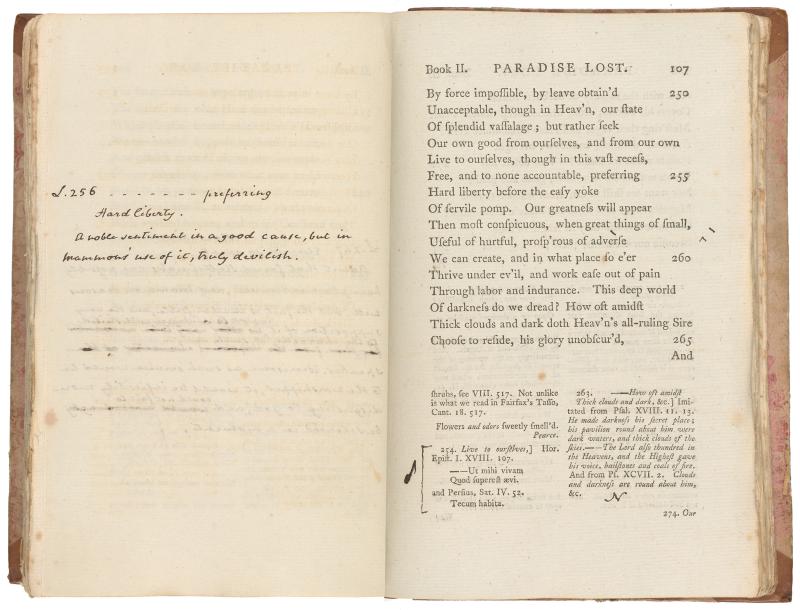 L. 256 - - - - - - - preferring
Hard liberty.
A noble sentiment in a good cause, but in
Mammons' use of it, truly devilish.
Book II. PARADISE LOST. 107
By force impoſſible, by leave obtain'd 250
Unacceptable, though in Heav'n, our ſtate
Of ſplendid vaſſalage; but rather ſeek
Our own good from ourſelves, and from our own
Live to ourſelves, though in this vaſt receſs,
Free, and to none accountable, preferring 255
Hard liberty before the eaſy yoke
Of ſervile pomp. Our greatneſs will appear
Then moſt conſpicuous, when great things of ſmall,
Uſeful of hurtful, proſp'rous of adverſe
We can create, and in what place ſo e'er 260
Thrive under ev'il, and work eaſe out of pain
Through labor and indurance. This deep world
Of darkneſs do we dread? How oft amidſt
Thick clouds and dark doth Heav'n's all-ruling Sire
Chooſe to reſide, his glory unobſcur'd, 265
And
ſhrubs, ſee VIII. 517. Not unlike
is what we read in Fairfax's Taſſo,
Cant. 18. 517.
Flowers and odors ſweetly ſmell'd.
Pearce.
254. Live to ourſelves,] Hor.
Epiſt. I. XVIII. 107.
——Ut mihi vivam
Quod ſupereſt ævi.
and Perſius, Sat. IV. 52.
Tecum habita.
263. ——How oft amidſt
Thick clouds and dark, &c.] Imi-
tated from Pſal. XVIII. 11. 13.
He made darkneſs his ſecret place;
his pavilion round about him were
dark waters, and thick clouds of the
ſkies.——The Lord alſo thundred in
the Heavens, and the Higheſt gave
his voice, hailſtones and coals of fire.
And from Pſ. XCVII. 2. Clouds
and darkneſs are round about him,
&c. N
274. Our